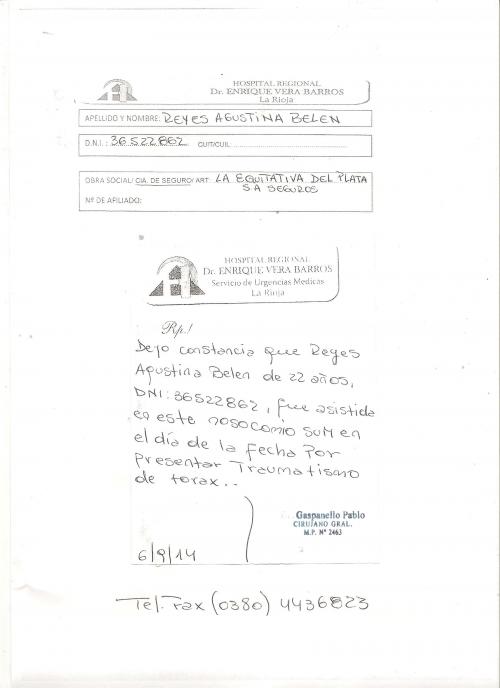 HOSPITAL REGIONAL
Dr. ENRIQUE VERA BARROS
La Rioja
APELLIDO Y NOMBRE: REYES AGUSTINA BELEN
D.N.I. : 36522862 CUIT/CUIL
OBRA SOCIAL/ CIA. DE SEGURO/ ART: LA EQUITATIVA DEL PLATA
S A SEGUROS
Nº DE AFILIADO:
HOSPITAL REGIONAL
Dr. ENRIQUE VERA BARROS
Servicio de Urgencias Medicas
La Rioja
Rp./
Dejo constancia que Reyes
Agustina Belen de 22 años,
DNI: 36522862, fue asistida
en este nosocomio SUM en
el día de la fecha Por
presentar Traumatismo
de torax..
Gaspanello Pablo
CIRUJANO GRAL.
M.P. Nº 2463
6/9/14
Tel. Fax (0380) 4436823